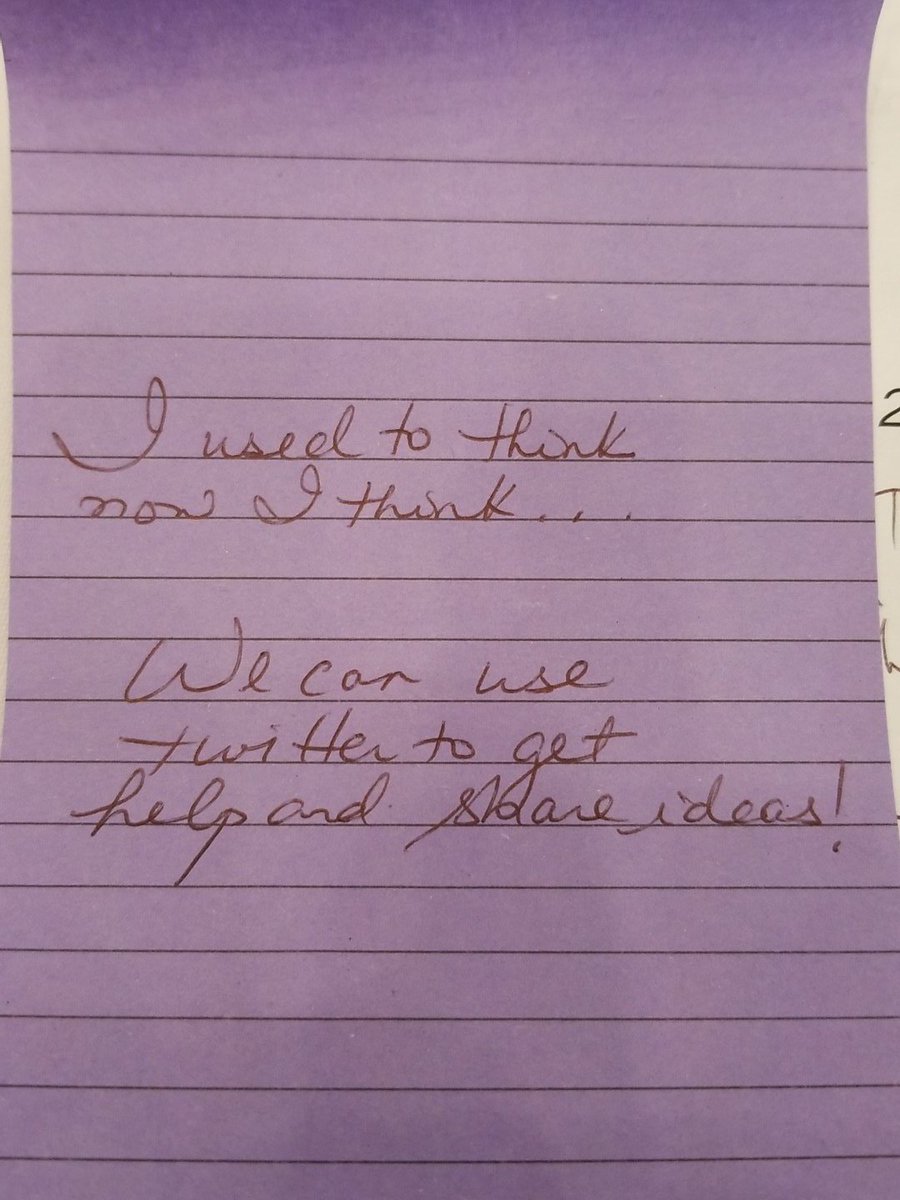 I used to think
now I think...
We can use
twitter to get
help and share ideas!
2
T